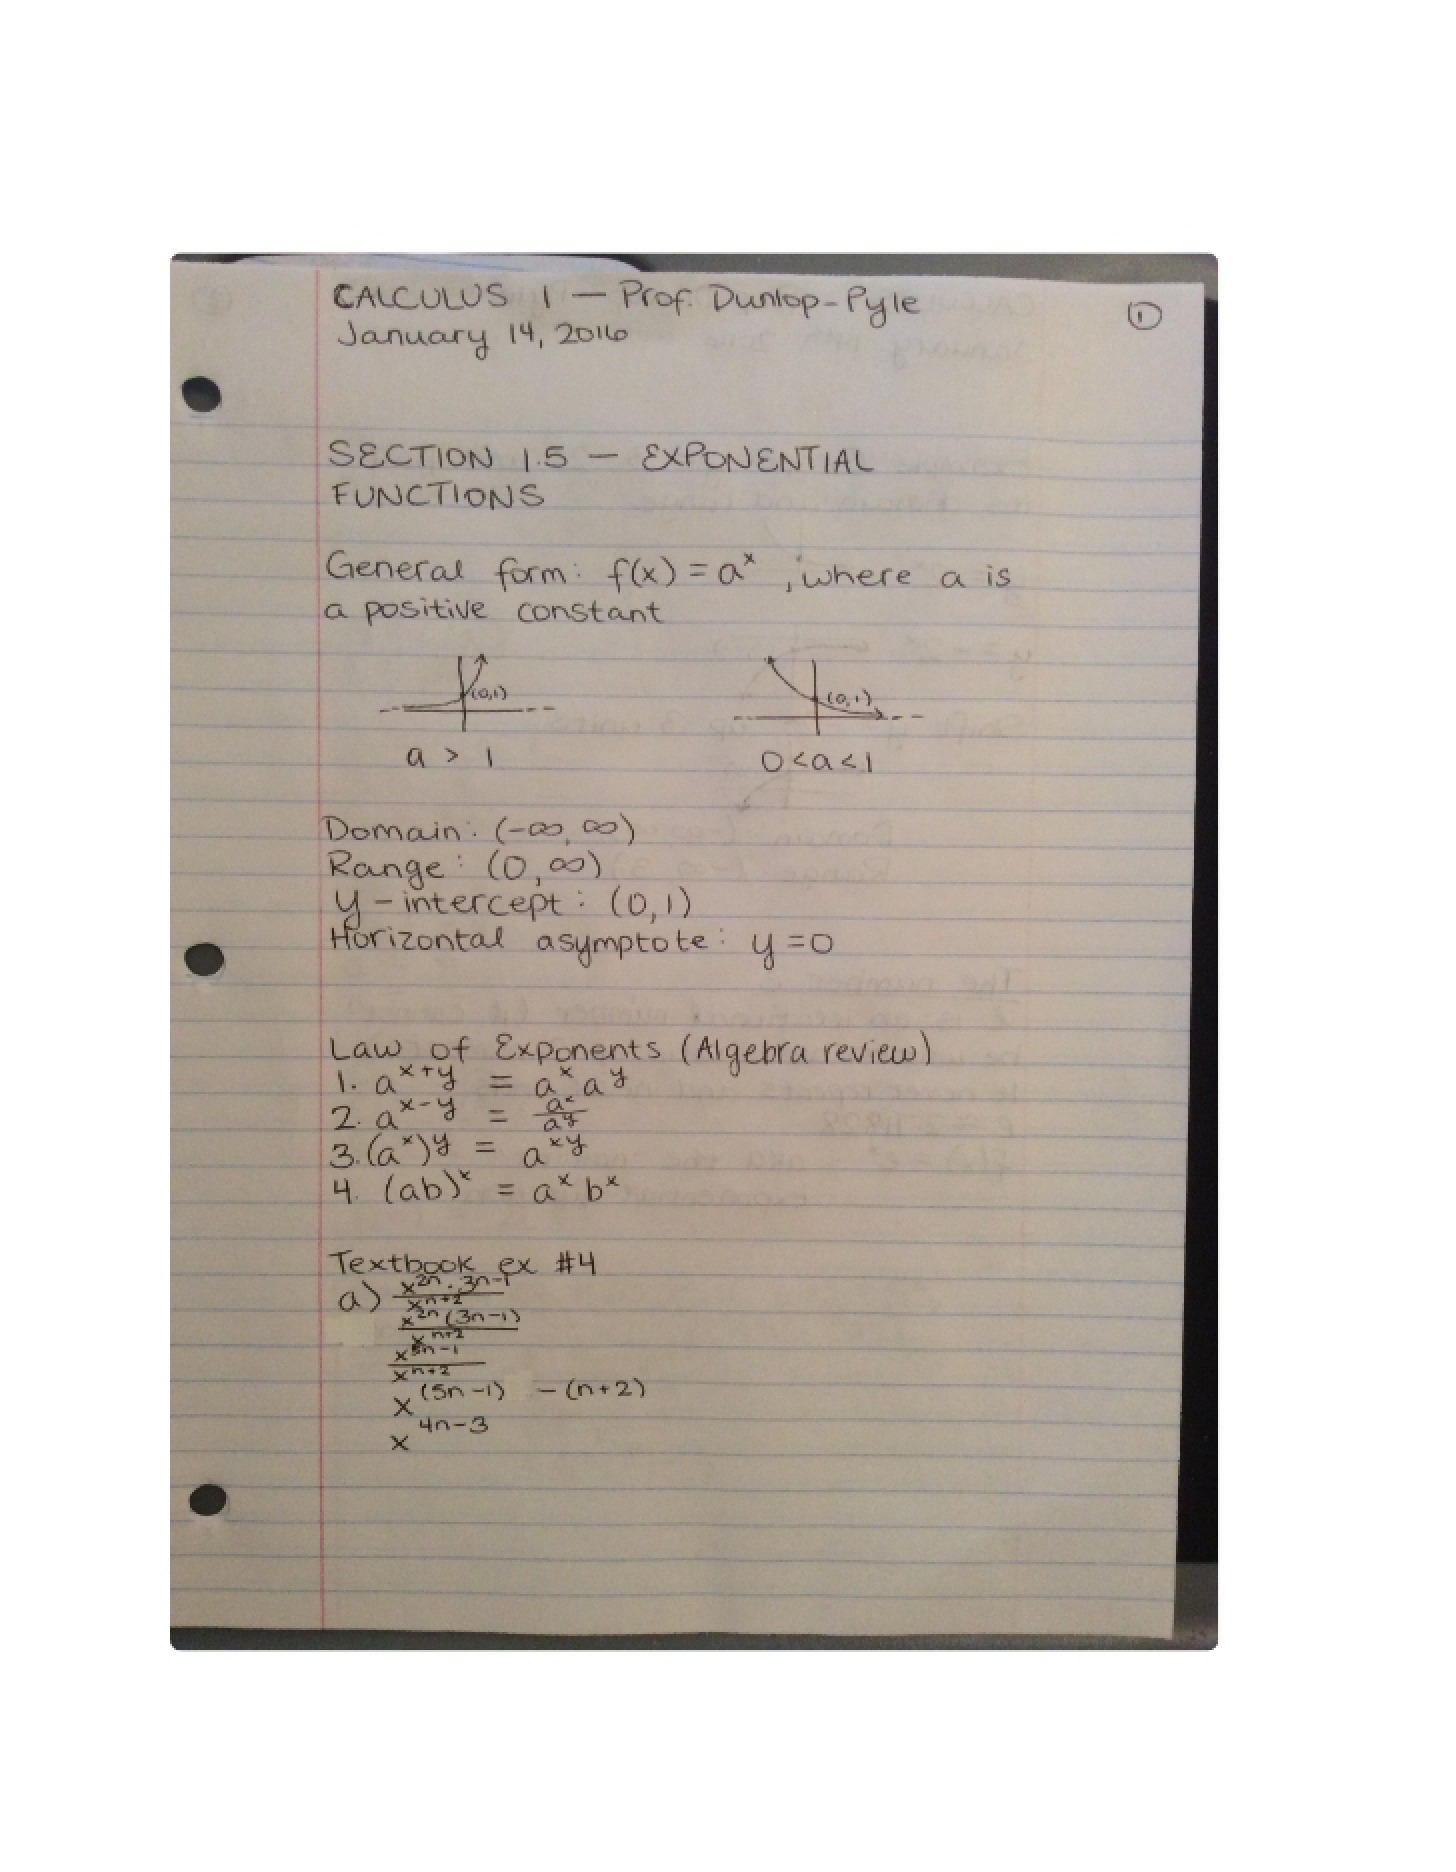 CALCULUS 1 — Prof. Dunlop-Pyle
①
January 14, 2016
SECTION 1.5 — EXPONENTIAL
FUNCTIONS
General form: f(x) = aˣ , where a is
a positive constant
(0,1) (0,1)
a > 1 0<a<1
Domain: (-∞, ∞)
Range: (0, ∞)
y-intercept: (0,1)
Horizontal asymptote: y=0
Law of Exponents (Algebra review)
1. a^x+y = a^x a^y
2. a^x-y = a^x/a^y
3. (a^x)^y = a^xy
4. (ab)^x = a^x b^x
Textbook ex #4
a) x^2n · 3n-1 / x^n+2
x^2n (3n-1) / x^n+2
x^5n-1 / x^n+2
x^(5n-1) - (n+2)
x^4n-3